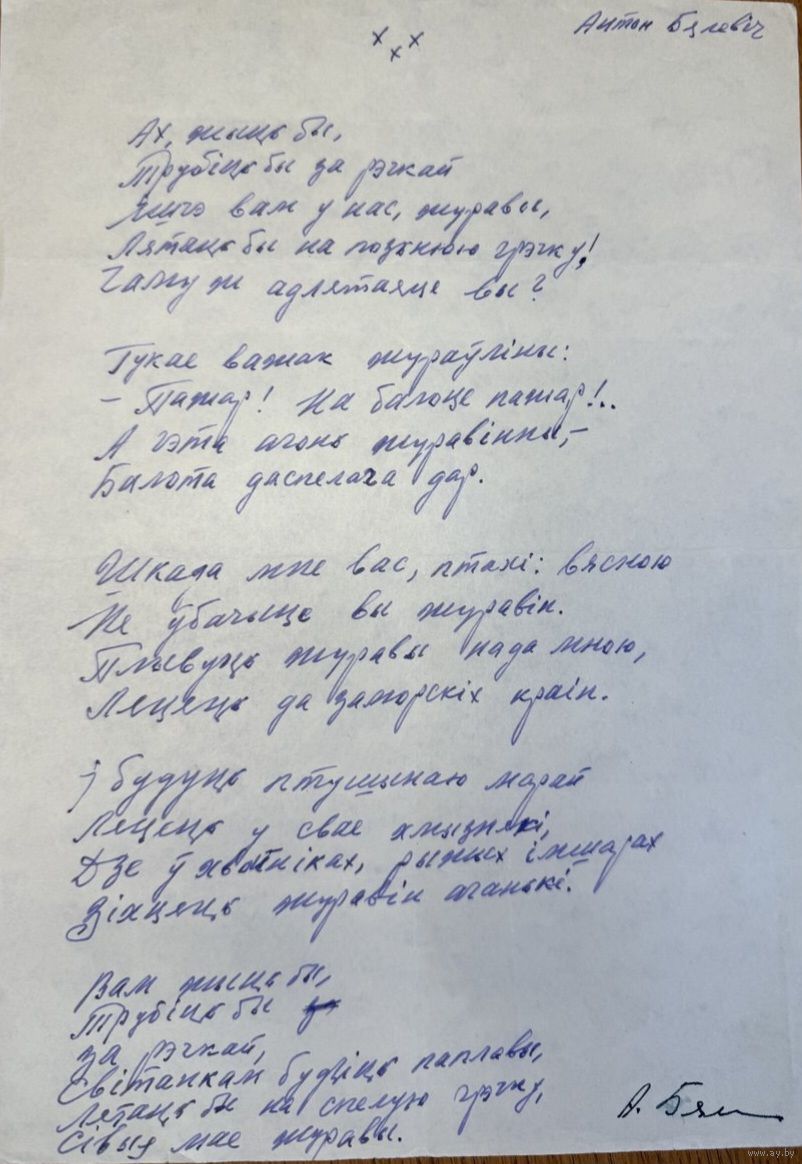 Антон Бялевіч
х х х
Ах, жыць бы,
Трубіць бы за рэчкай
Яшчэ вам у нас, журавы,
Лятаць бы на позднюю грэчку!
Чаму ж адлятаеце вы?
Гукае важак жураўліны:
– Пажар! На балоце пажар!..
А гэта агонь журавінны,–
Балота даспелага дар.
Шкада мне вас, птахі: вясною
Не ўбачыце вы журавін.
Плывуць журавы нада мною,
Ляцяць да заморскіх краін.
І будуць птушынаю марай
Ляцець у свае хмызнякі,
Дзе ў імшарах
Зіхцяць журавін аганькі.
Вам жыць бы,
Трубіць бы
за рэчкай,
Світанкам будзіць паплавы,
Лятаць бы на спелую грэчку,
Сівыя мае журавы.
А. Бял
www.ay.by